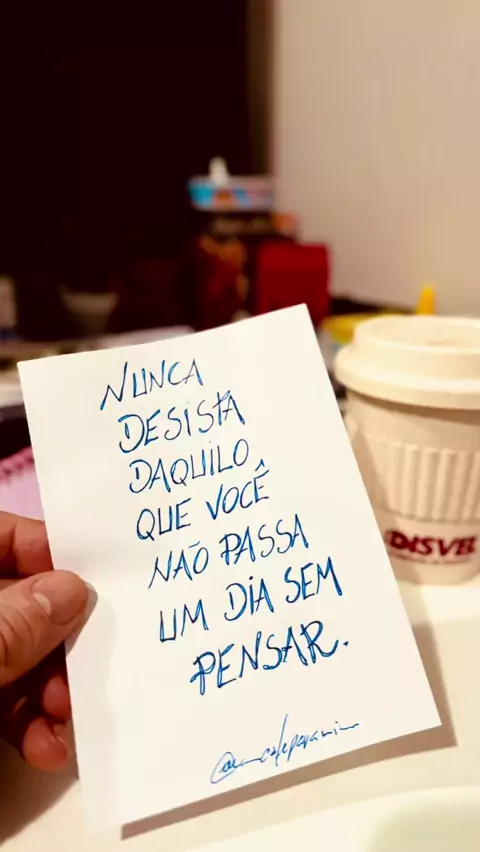 NUNCA
DESISTA
DAQUILO
QUE VOCÊ
NÃO PASSA
UM DIA SEM
PENSAR.